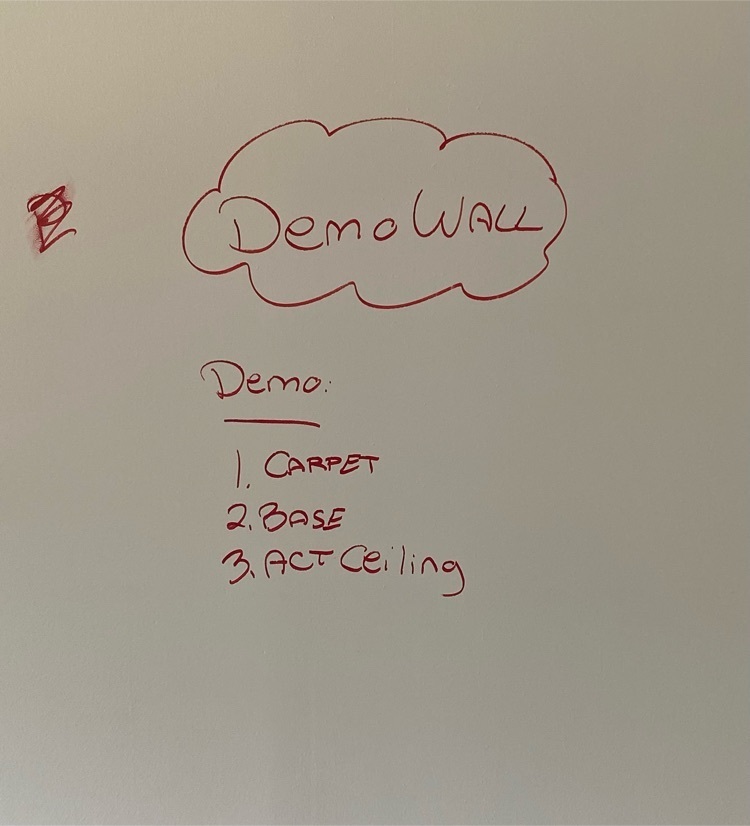 Demo WALL
Demo:
1. CARPET
2. BASE
3. ACT Ceiling